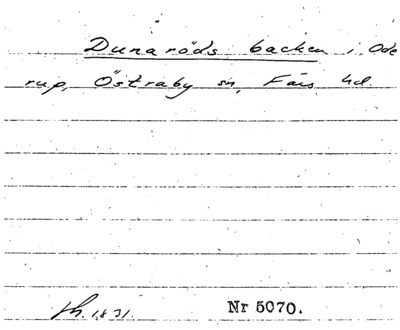 Dunaröds backen i Ode
rup, Östraby sn, Färs hd.
Nr 5070.